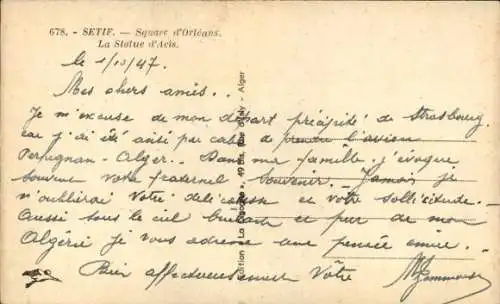 678. - SETIF. — Square d'Orléans.
La Statue d'Acis.
le 1/10/47.
Mes chers amis..
Je m'excuse de mon départ précipité de Strasbourg.
car j'ai été avisé par cable de prendre l'avion
Perpignan - Alger.. Dans ma famille j'évoque
souvent votre fraternel souvenir. Jamais je
n'oublierai Votre délicatesse et votre sollicitude.
Aussi sous le ciel brûlant et pur de mon
Algérie je vous adresse une pensée émue.
Bien affectueusement Vôtre
Alger